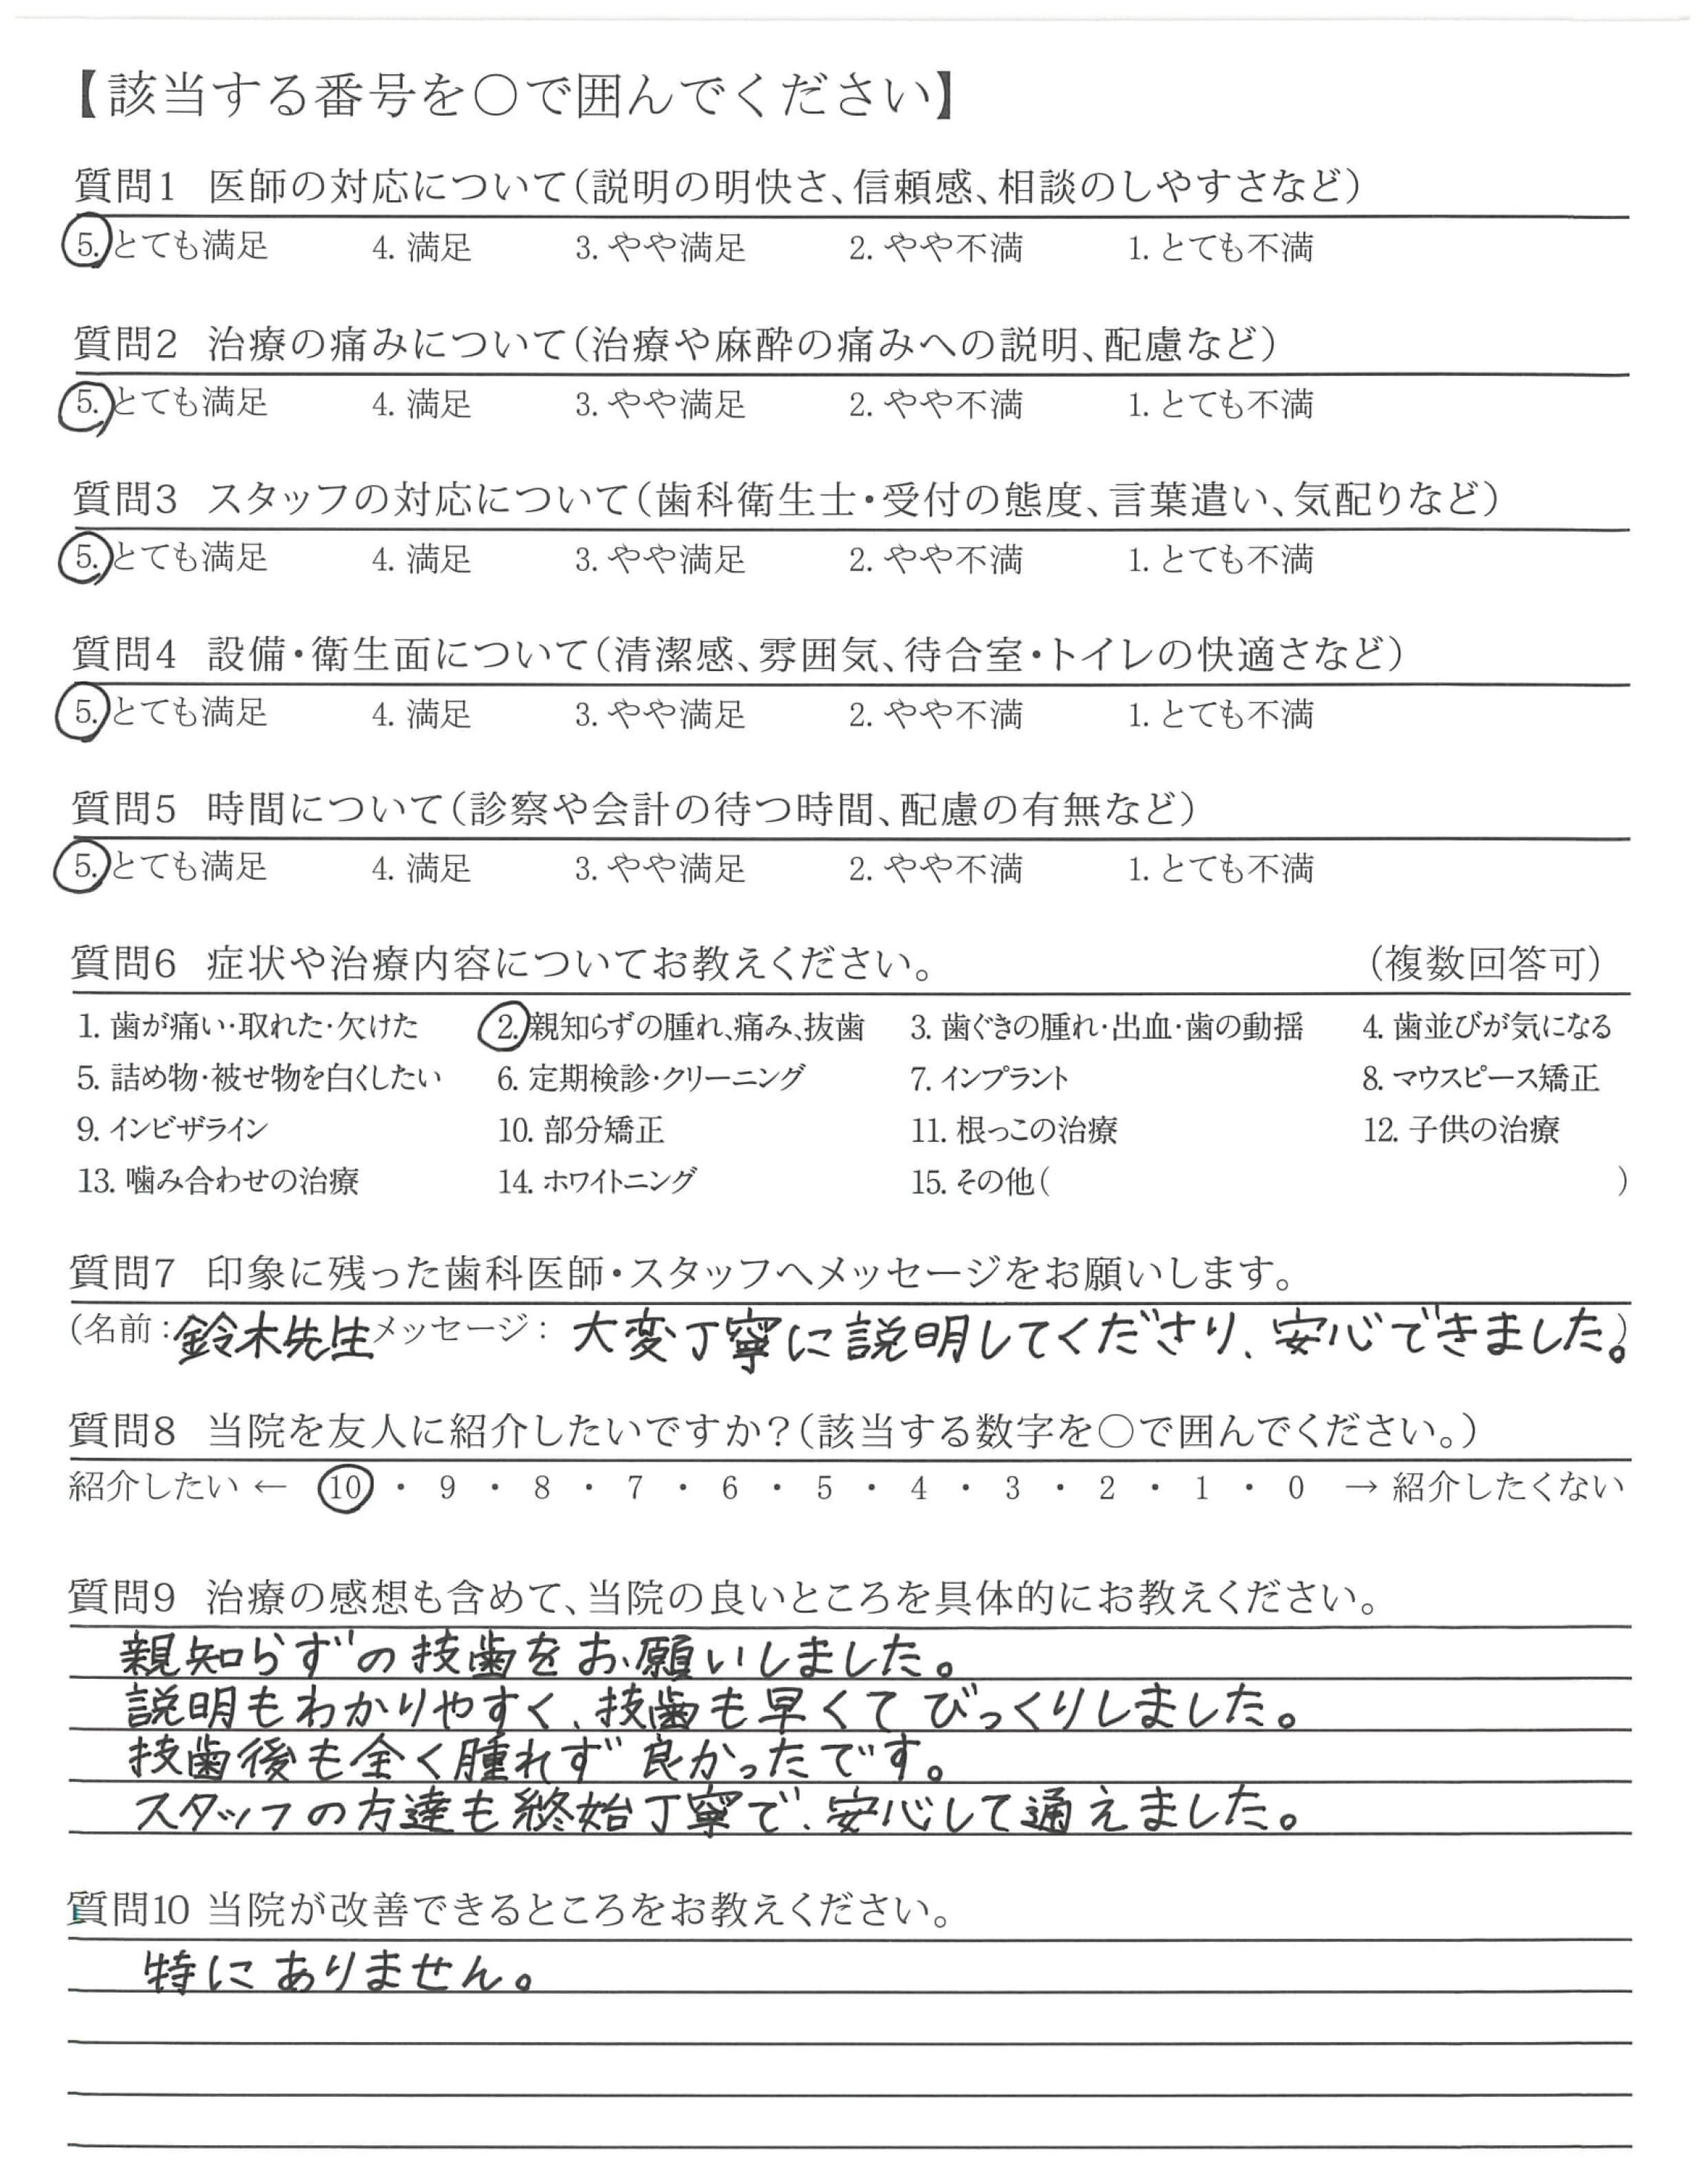 【該当する番号を○で囲んでください】
質問1 医師の対応について(説明の明快さ、信頼感、相談のしやすさなど)
5. とても満足 4. 満足 3. やや満足 2. やや不満 1. とても不満
質問2 治療の痛みについて(治療や麻酔の痛みへの説明、配慮など)
5. とても満足 4. 満足 3. やや満足 2. やや不満 1. とても不満
質問3 スタッフの対応について(歯科衛生士・受付の態度、言葉遣い、気配りなど)
5. とても満足 4. 満足 3. やや満足 2. やや不満 1. とても不満
質問4 設備・衛生面について(清潔感、雰囲気、待合室・トイレの快適さなど)
5. とても満足 4. 満足 3. やや満足 2. やや不満 1. とても不満
質問5 時間について(診察や会計の待つ時間、配慮の有無など)
5. とても満足 4. 満足 3. やや満足 2. やや不満 1. とても不満
質問6 症状や治療内容についてお教えください。 (複数回答可)
1. 歯が痛い・取れた・欠けた 2. 親知らずの腫れ、痛み、抜歯 3. 歯ぐきの腫れ・出血・歯の動揺 4. 歯並びが気になる
5. 詰め物・被せ物を白くしたい 6. 定期検診・クリーニング 7. インプラント 8. マウスピース矯正
9. インビザライン 10. 部分矯正 11. 根っこの治療 12. 子供の治療
13. 噛み合わせの治療 14. ホワイトニング 15. その他( )
質問7 印象に残った歯科医師・スタッフへメッセージをお願いします。
(名前：鈴木先生 メッセージ： 大変丁寧に説明してくださり、安心できました。)
質問8 当院を友人に紹介したいですか？(該当する数字を○で囲んでください。)
紹介したい ← 10 ・ 9 ・ 8 ・ 7 ・ 6 ・ 5 ・ 4 ・ 3 ・ 2 ・ 1 ・ 0 → 紹介したくない
質問9 治療の感想も含めて、当院の良いところを具体的にお教えください。
親知らずの技歯をお願いしました。
説明もわかりやすく、技歯も早くてびっくりしました。
技歯後も全く腫れず良かったです。
スタッフの方達も終始丁寧で、安心して通えました。
質問10 当院が改善できるところをお教えください。
特にありません。